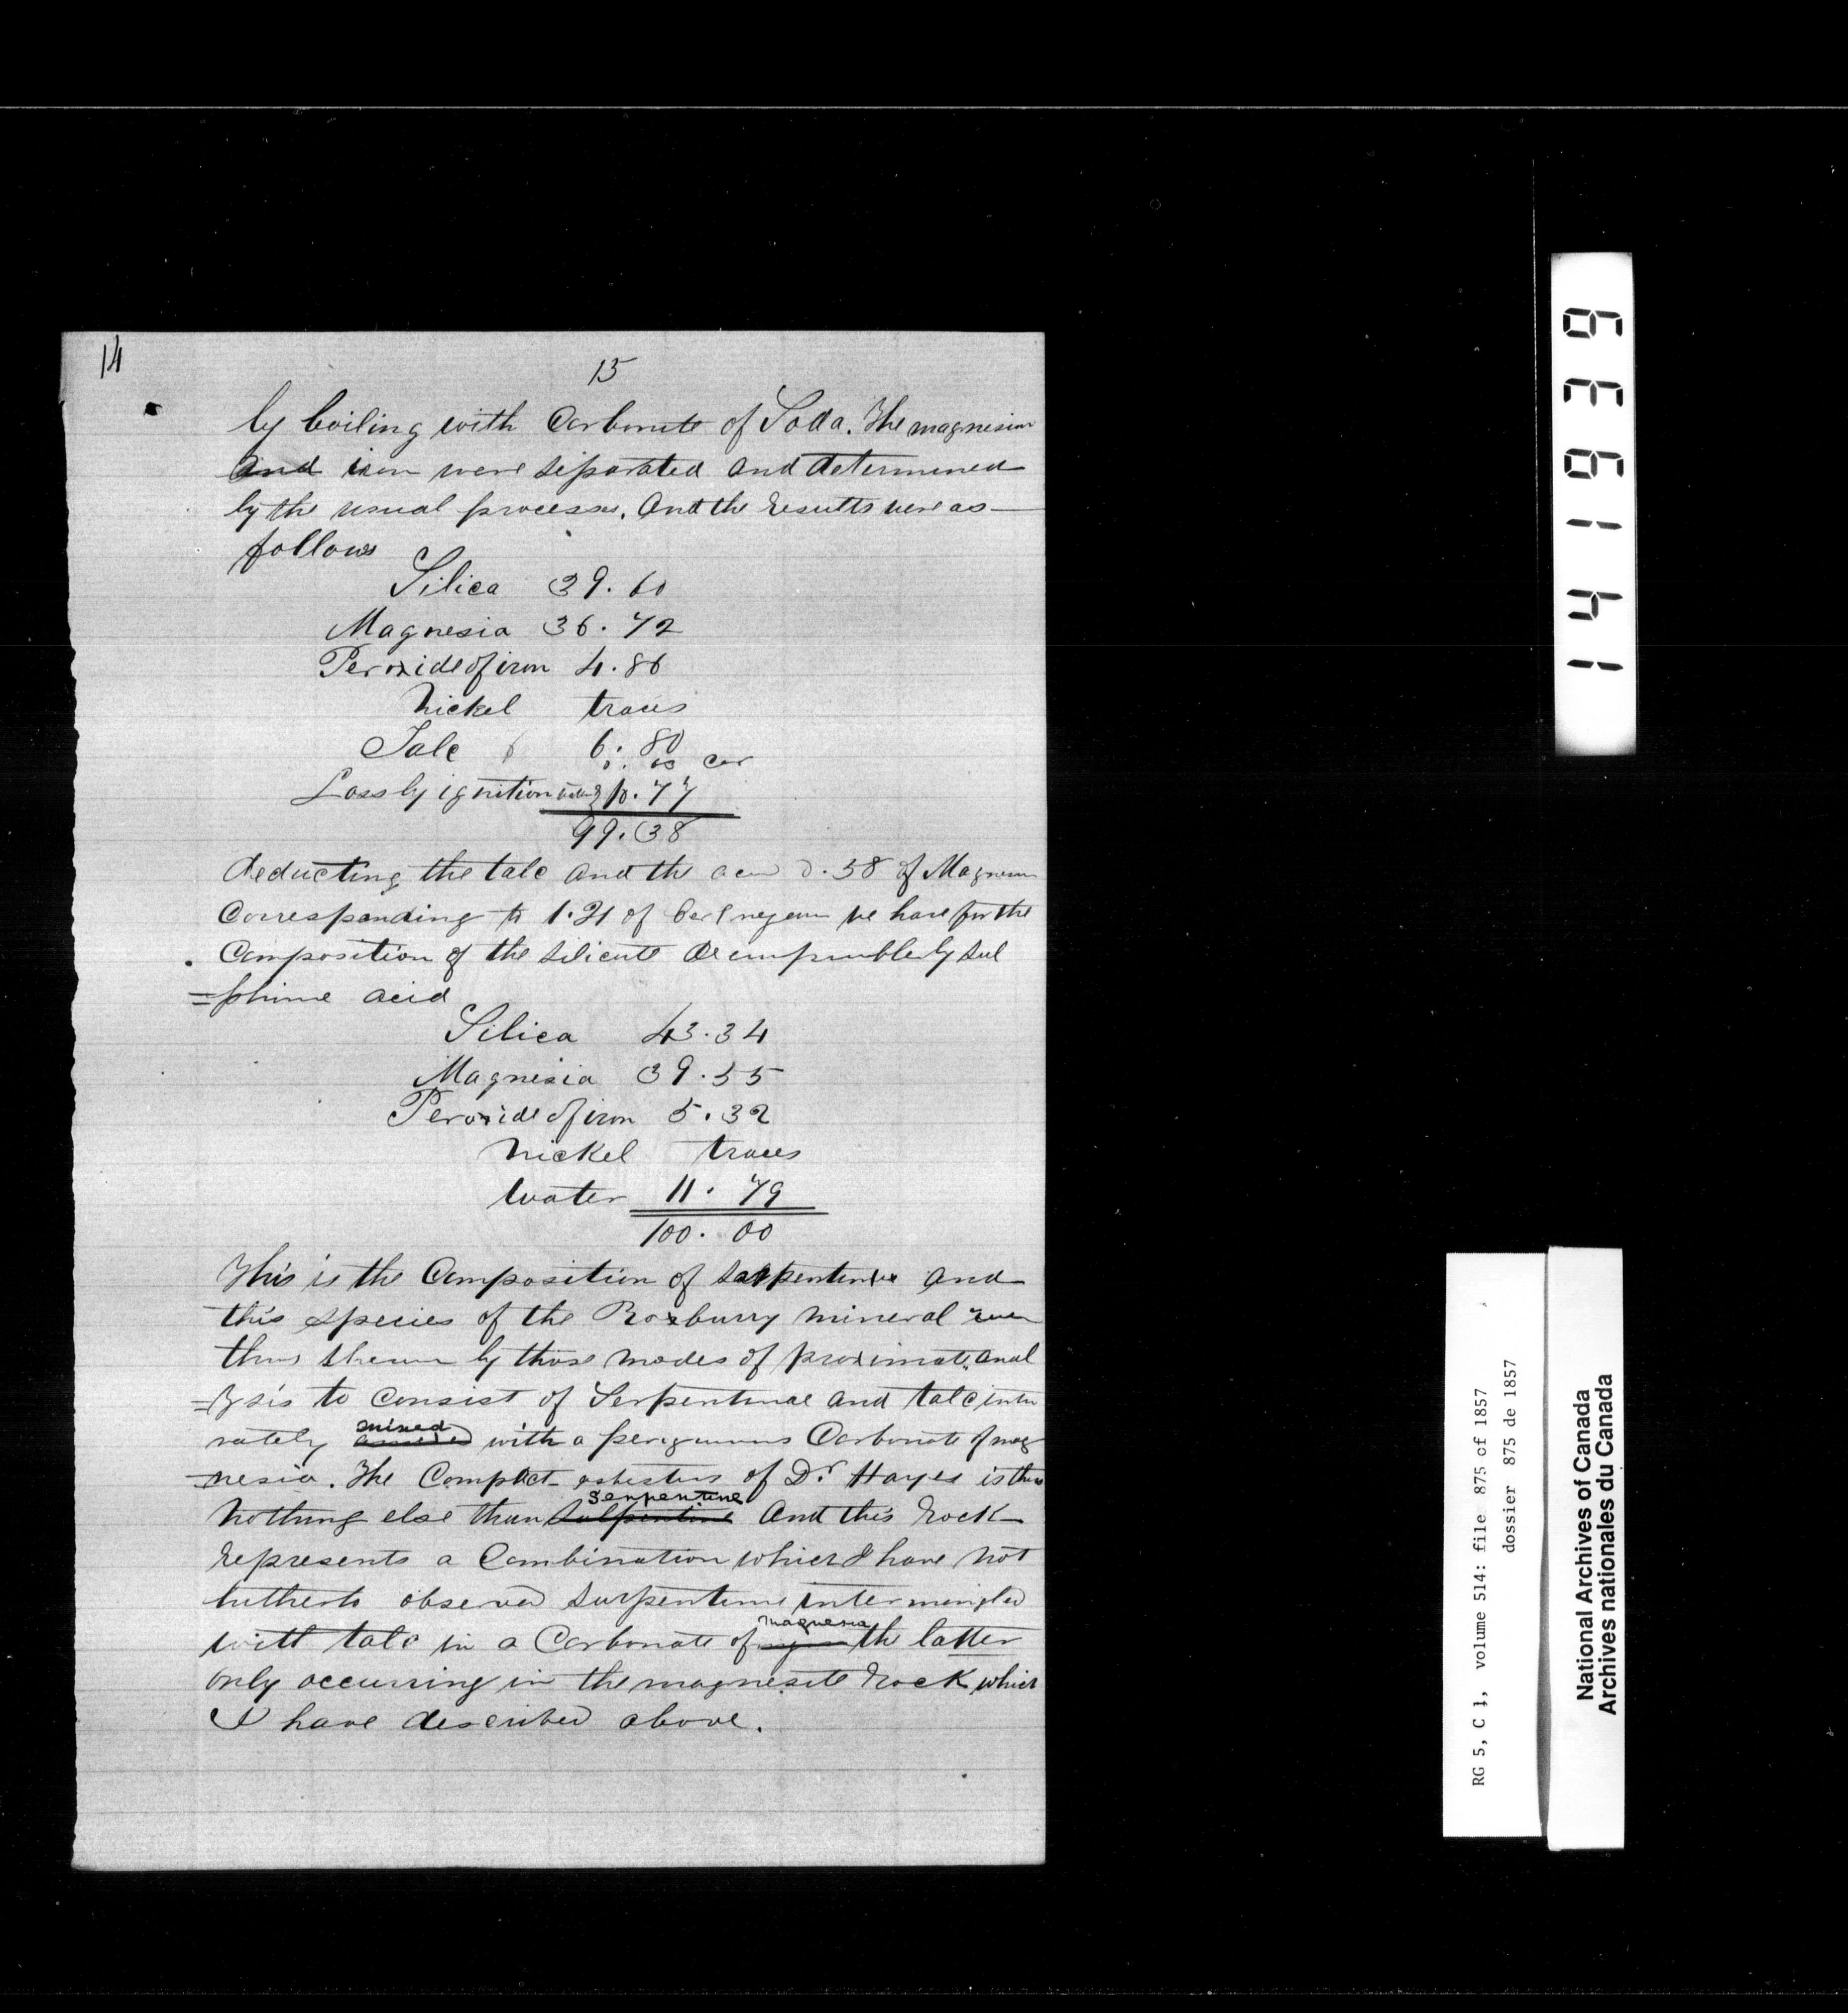 14
15
by boiling with Carbonate of Soda. The magnesium
and iron were separated and determined
by the usual processes. And the results were as
follows
Silica 39.60
Magnesia 36.72
Peroxide of iron 4.86
Nickel traces
Talc 6.80
Loss by ignition 10.77
99.38
deducting the talc and the 0.58 of Magnesium
Corresponding to 1.21 of we have for the
Composition of the silicate by sul
=phuric acid
Silica 43.34
Magnesia 39.55
Peroxide of iron 5.32
Nickel traces
Water 11.79
100.00
This is the Composition of serpentine and
this species of the Roxburry mineral
thus shewn by those modes of proximate anal
=ysis to consist of Serpentine and talc inti
mately mixed with a Carbonate of mag
=nesia. The Compact asbestus of Dr. Hayes is thus
nothing else than serpentine And this rock
represents a Combination which I have not
hitherto observed surpentine intermingled
with talc in a Carbonate of magnesia the latter
only occurring in the magnesite rock which
I have described above.
141939
RG 5, C 1, volume 514: file 875 of 1857
dossier 875 de 1857
National Archives of Canada
Archives nationales du Canada